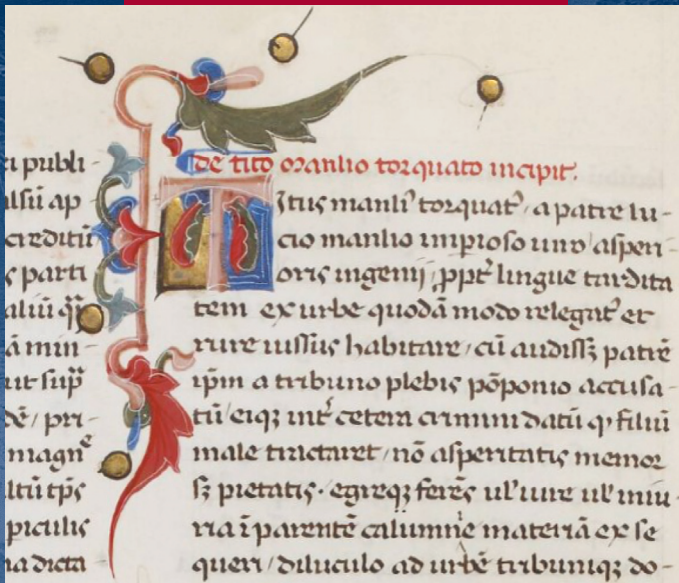 ci publi-
alsū ap
crediti
s parti
aliū
ā min-
ut sup̄
dē / pri-
magne
altū tp̄s
piculis
na dicta
de tito manlio torquato incipit
TItus manliꝰ torquatꝰ / a patre lu-
cio manlio imꝑioso uiro / asperi-
oris ingenij / ꝓpt̄ lingue tardita
tem ex urbe quodā modo relegatꝰ et
rure iussus habitare / cū audissꝫ patrē
ip̄m a tribuno plebis pōponio accusa-
tū / eiqꝫ int̄ cetera crimini datū ꝙ filiū
male tractaret / nō asperitatis memor
sꝫ pietatis · egreqꝫ ferēs ul' iure ul' iniu-
ria ī parentē calumnie materiā exse
queri / diluculo ad urbē tribuniqꝫ do-